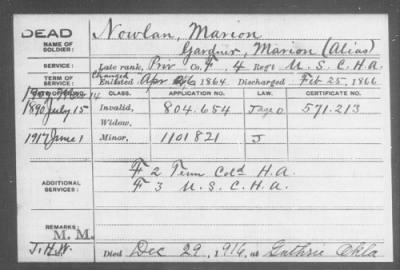 DEAD
NAME OF SOLDIER: Nowlan, Marion
Gardner, Marion (Alias)
SERVICE: Late rank, Priv Co. F, 4 Regt U. S. C. H. A.
TERM OF SERVICE: Enlisted Apr 1864 Discharged Feb 25, 1866
CLASS. APPLICATION NO. LAW. CERTIFICATE NO.
1890 July 15 Invalid, 804.654 571.213
Widow,
1917 June 1 Minor, 1101821 J
ADDITIONAL SERVICES: F 2 Tenn Cold H. A.
F 3 U. S. C. H. A.
REMARKS: M. M.
J. H. W. Died Dec 29, 1916, at Guthrie Okla